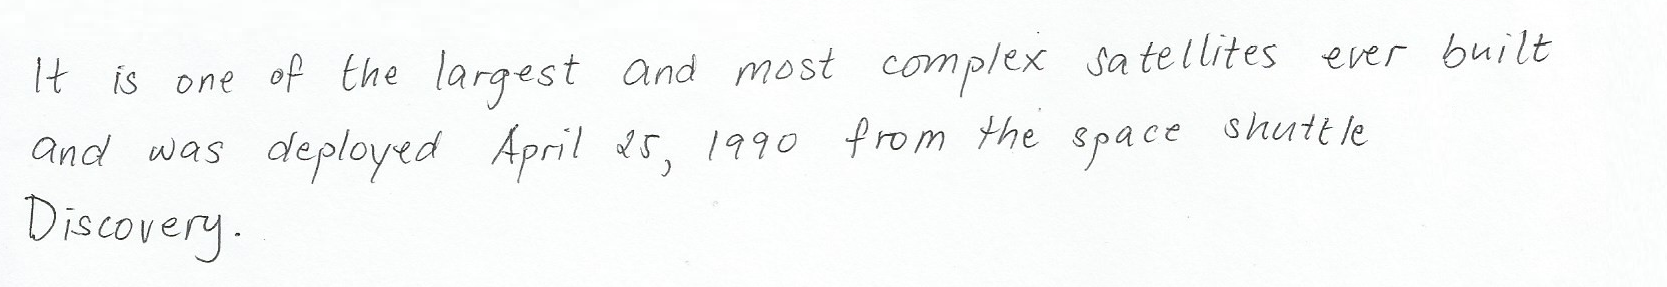 It is one of the largest and most complex satellites ever built
and was deployed April 25, 1990 from the space shuttle
Discovery.